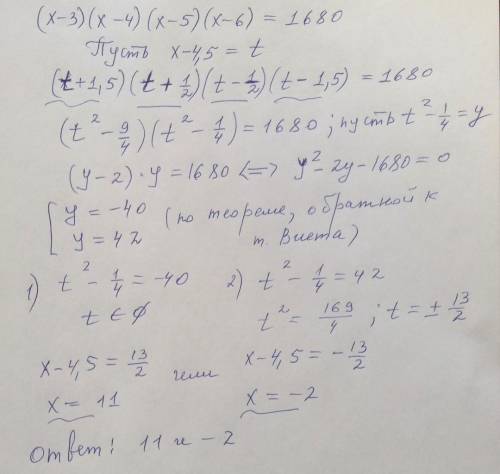 (x-3)(x-4)(x-5)(x-6) = 1680
Пусть x-4,5 = t
(t+1,5)(t+1/2)(t-1/2)(t-1,5) = 1680
(t²-9/4)(t²-1/4) = 1680; пусть t²-1/4 = y
(y-2)·y = 1680 <=> y²-2y-1680 = 0
[ y = -40
y = 42 (по теореме, обратной к т. Виета)
1) t²-1/4 = -40 2) t²-1/4 = 42
t ∈ ∅ t² = 169/4; t = ± 13/2
x-4,5 = 13/2 или x-4,5 = -13/2
x = 11 x = -2
Ответ: 11 и -2